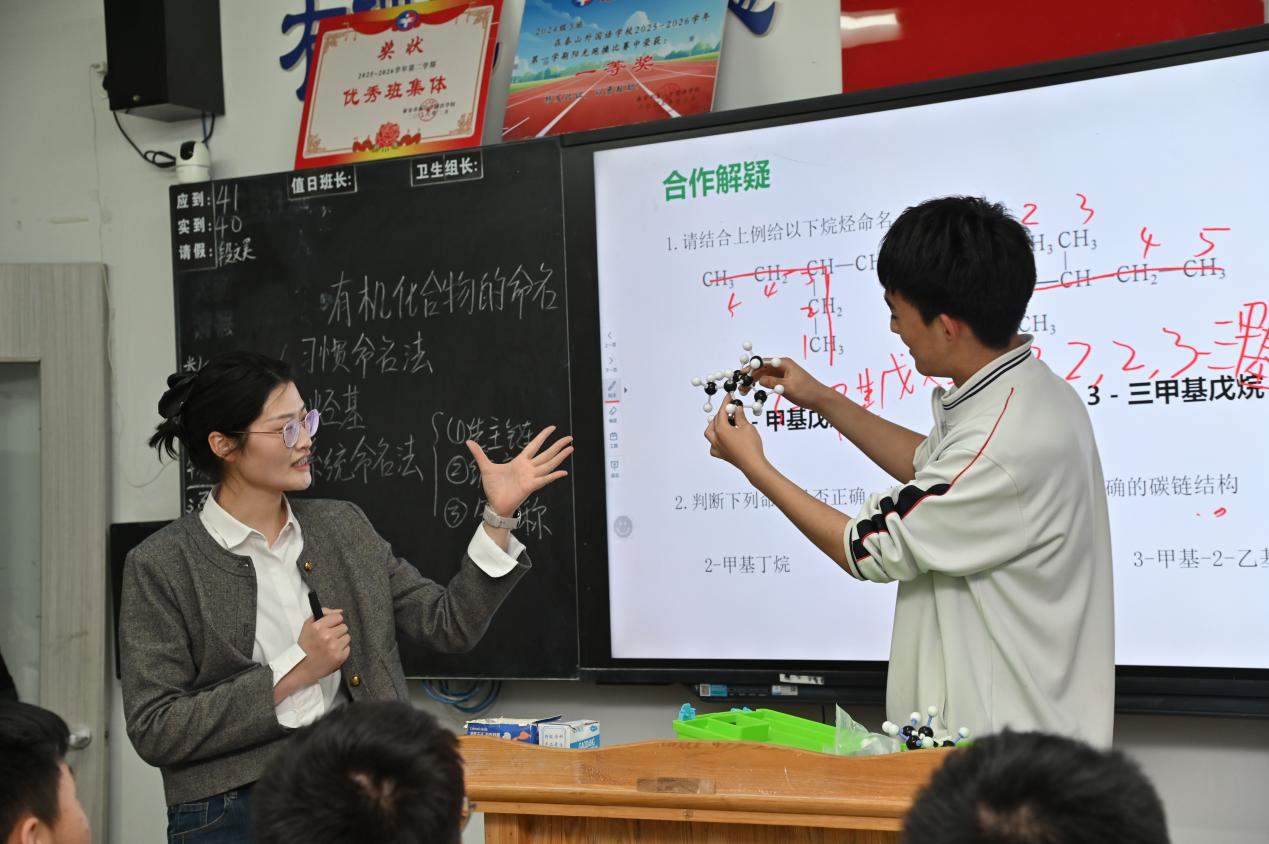 奖状
2025-2026学年第二学期
优秀班集体
2024级3班
在泰山外国语学校2025-2026学年
第一学期阳光跑操比赛中荣获：
一等奖
值日班长:
卫生组长:
应到: 41
实到: 40
请假:
有机化合物的命名
习惯命名法
烃基
系统命名法
①选主链
②
③ 称
合作解疑
1.请结合上例给以下烷烃命名
2 3
CH₃ CH₃
4 5
CH₃ CH₂ CH—CH
—CH CH₂ CH₃
5 4 3
2 CH₂
1 CH₃
CH₃
2,2,3-三甲基
甲基戊
3 - 三甲基戊烷
2.判断下列命 否正确
确的碳链结构
2-甲基丁烷
3-甲基-2-乙基